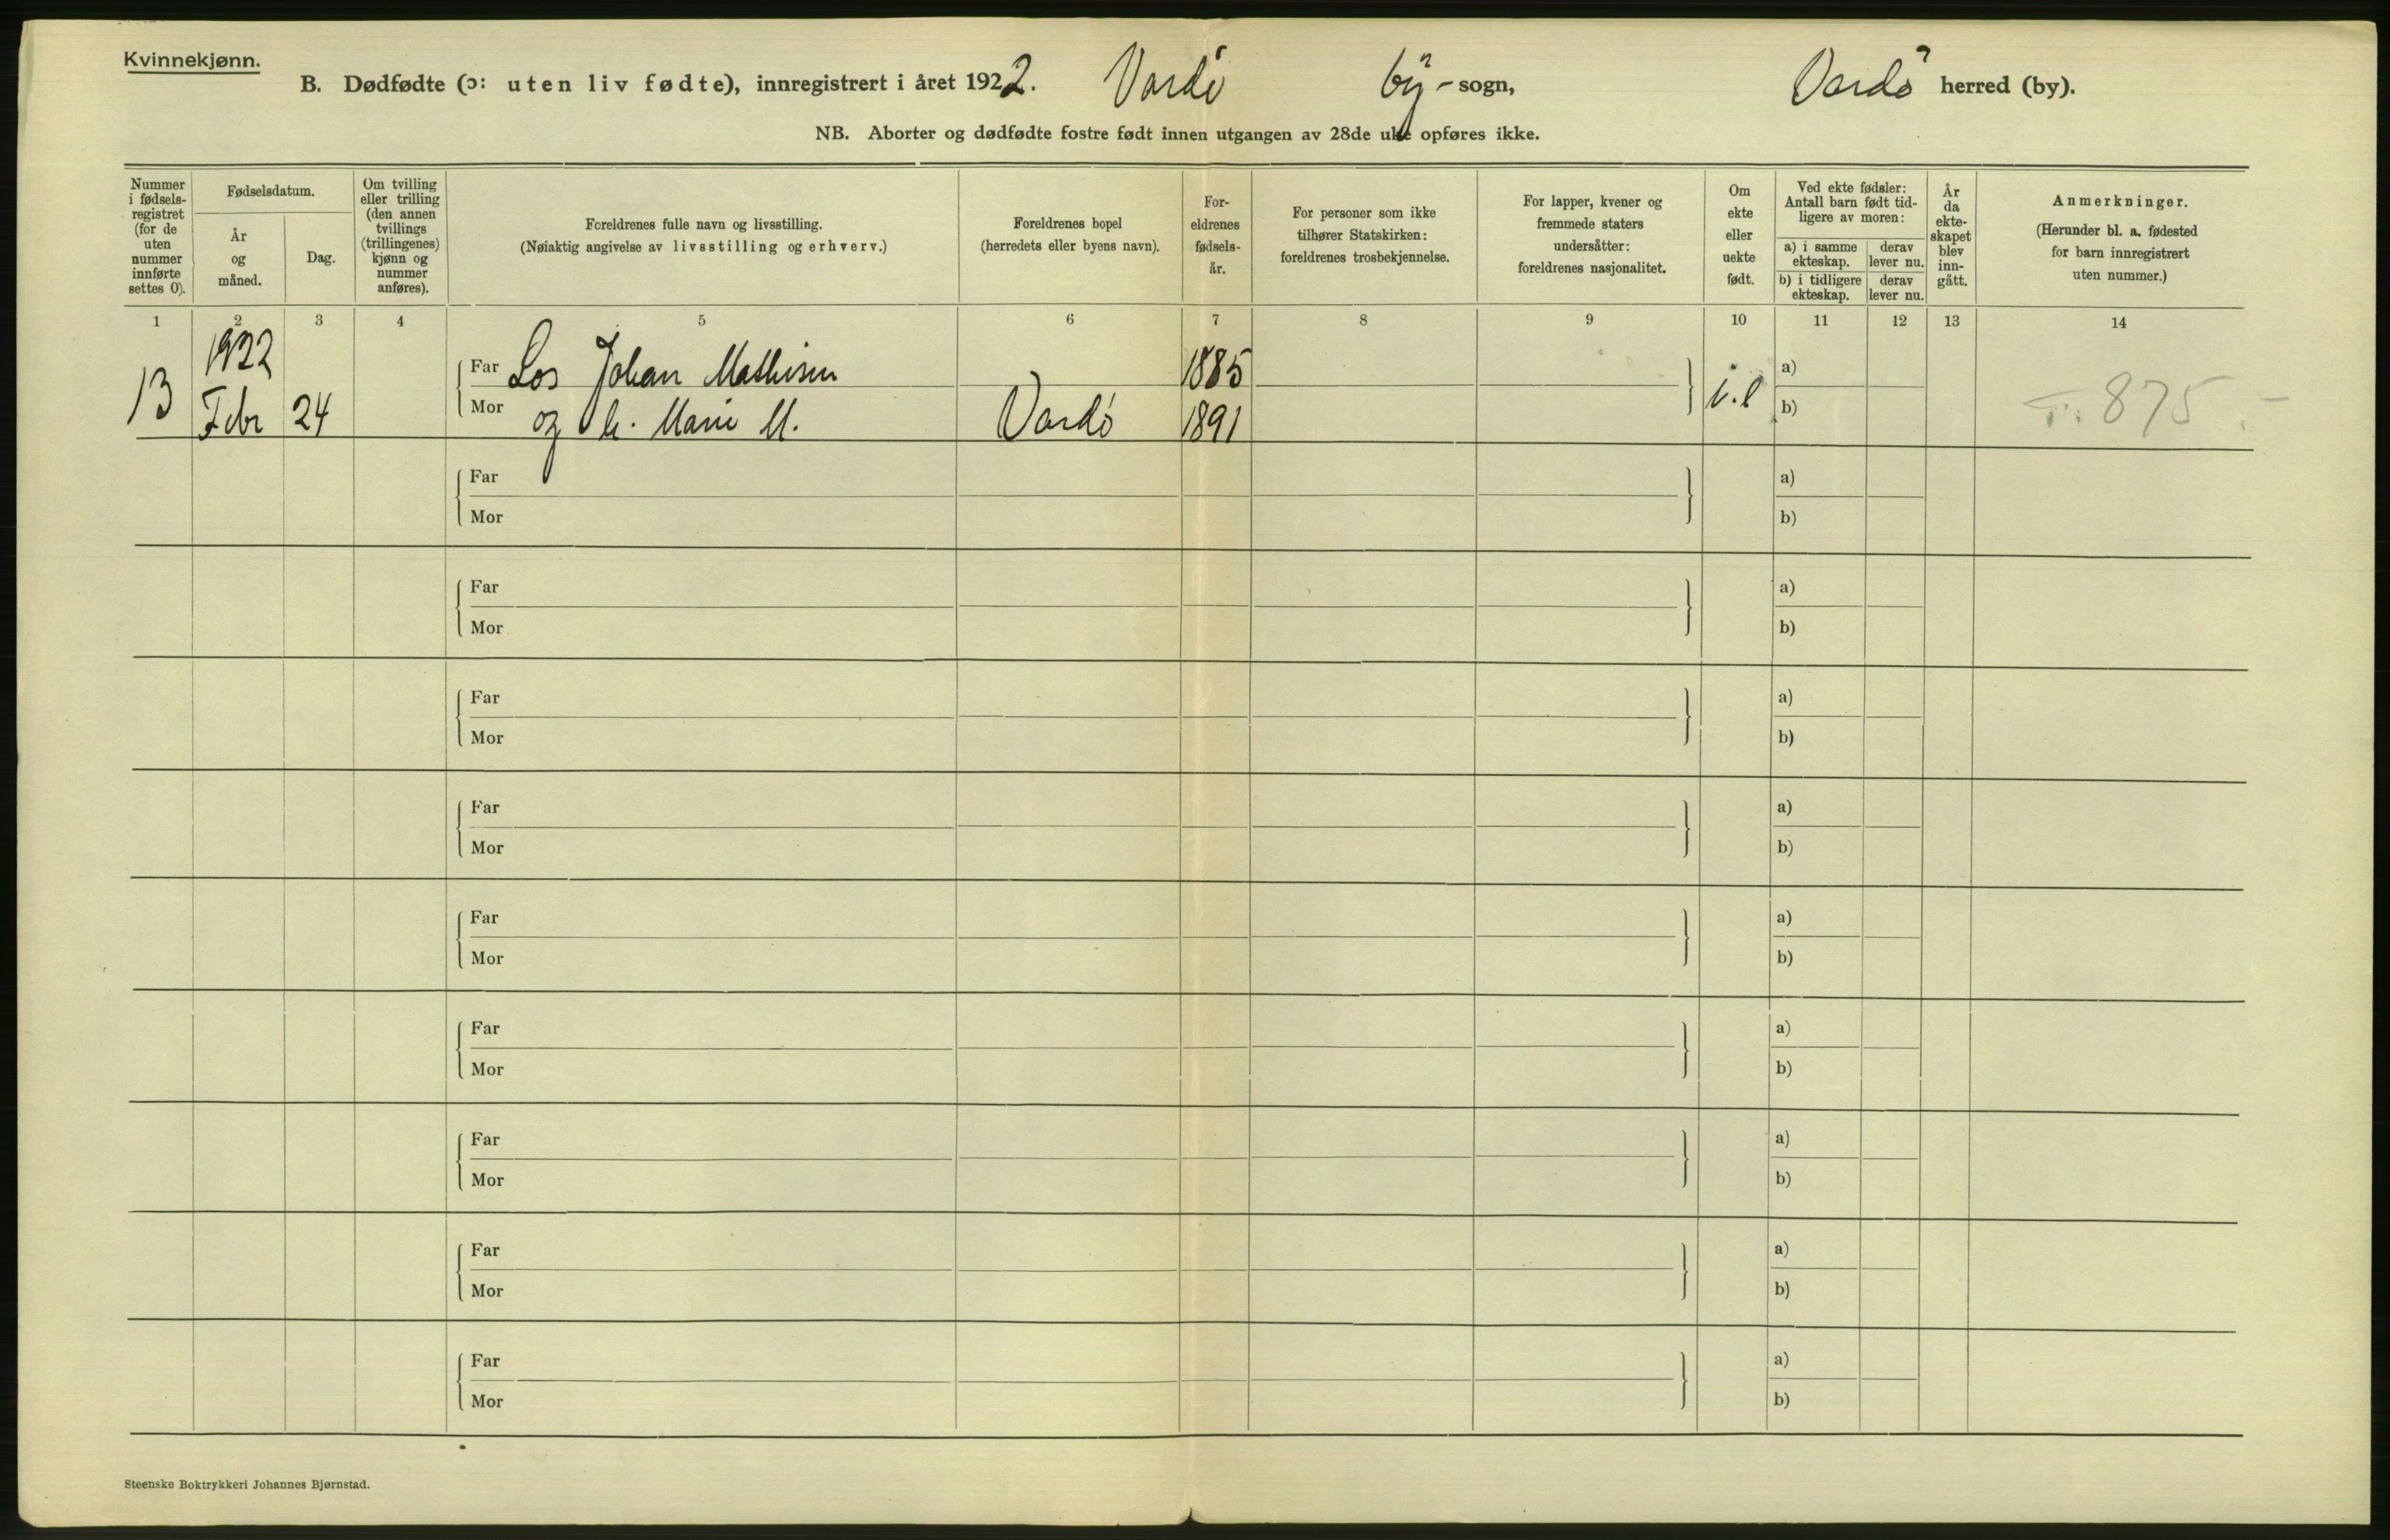 Kvinnekjønn.
B. Dødfødte (ɔ: uten liv fødte), innregistrert i året 1922. Vardö by - sogn, Vardö herred (by).
NB. Aborter og dødfødte fostre født innen utgangen av 28de uke opføres ikke.
Nummer i fødsels-registret (for de uten nummer innførte settes 0).
Fødselsdatum.
År og måned.
Dag.
Om tvilling eller trilling (den annen tvillings (trillingenes) kjønn og nummer anføres).
Foreldrenes fulle navn og livsstilling.
(Nøiaktig angivelse av livsstilling og erhverv.)
Foreldrenes bopel
(herredets eller byens navn).
For-eldrenes fødsels-år.
For personer som ikke tilhører Statskirken: foreldrenes trosbekjennelse.
For lapper, kvener og fremmede staters undersåtter: foreldrenes nasjonalitet.
Om ekte eller uekte født.
Ved ekte fødsler: Antall barn født tid-ligere av moren:
a) i samme ekteskap.
derav lever nu.
b) i tidligere ekteskap.
derav lever nu.
År da ekte-skapet blev inn-gått.
Anmerkninger.
(Herunder bl. a. fødested for barn innregistrert uten nummer.)
1 2 3 4 5 6 7 8 9 10 11 12 13 14
1922
Far Los Johan Mathisen 1885 a)
13 Febr 24 Mor og h. Marie M. Vardö 1891 i.l b) 875
Far a)
Mor b)
Far a)
Mor b)
Far a)
Mor b)
Far a)
Mor b)
Far a)
Mor b)
Far a)
Mor b)
Far a)
Mor b)
Far a)
Mor b)
Far a)
Mor b)
Steenske Boktrykkeri Johannes Bjørnstad.